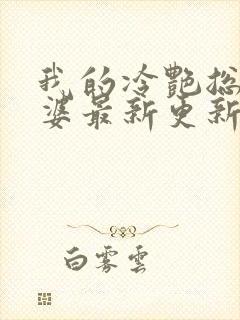 我的冷艷总
婆最新更新
白雾雲